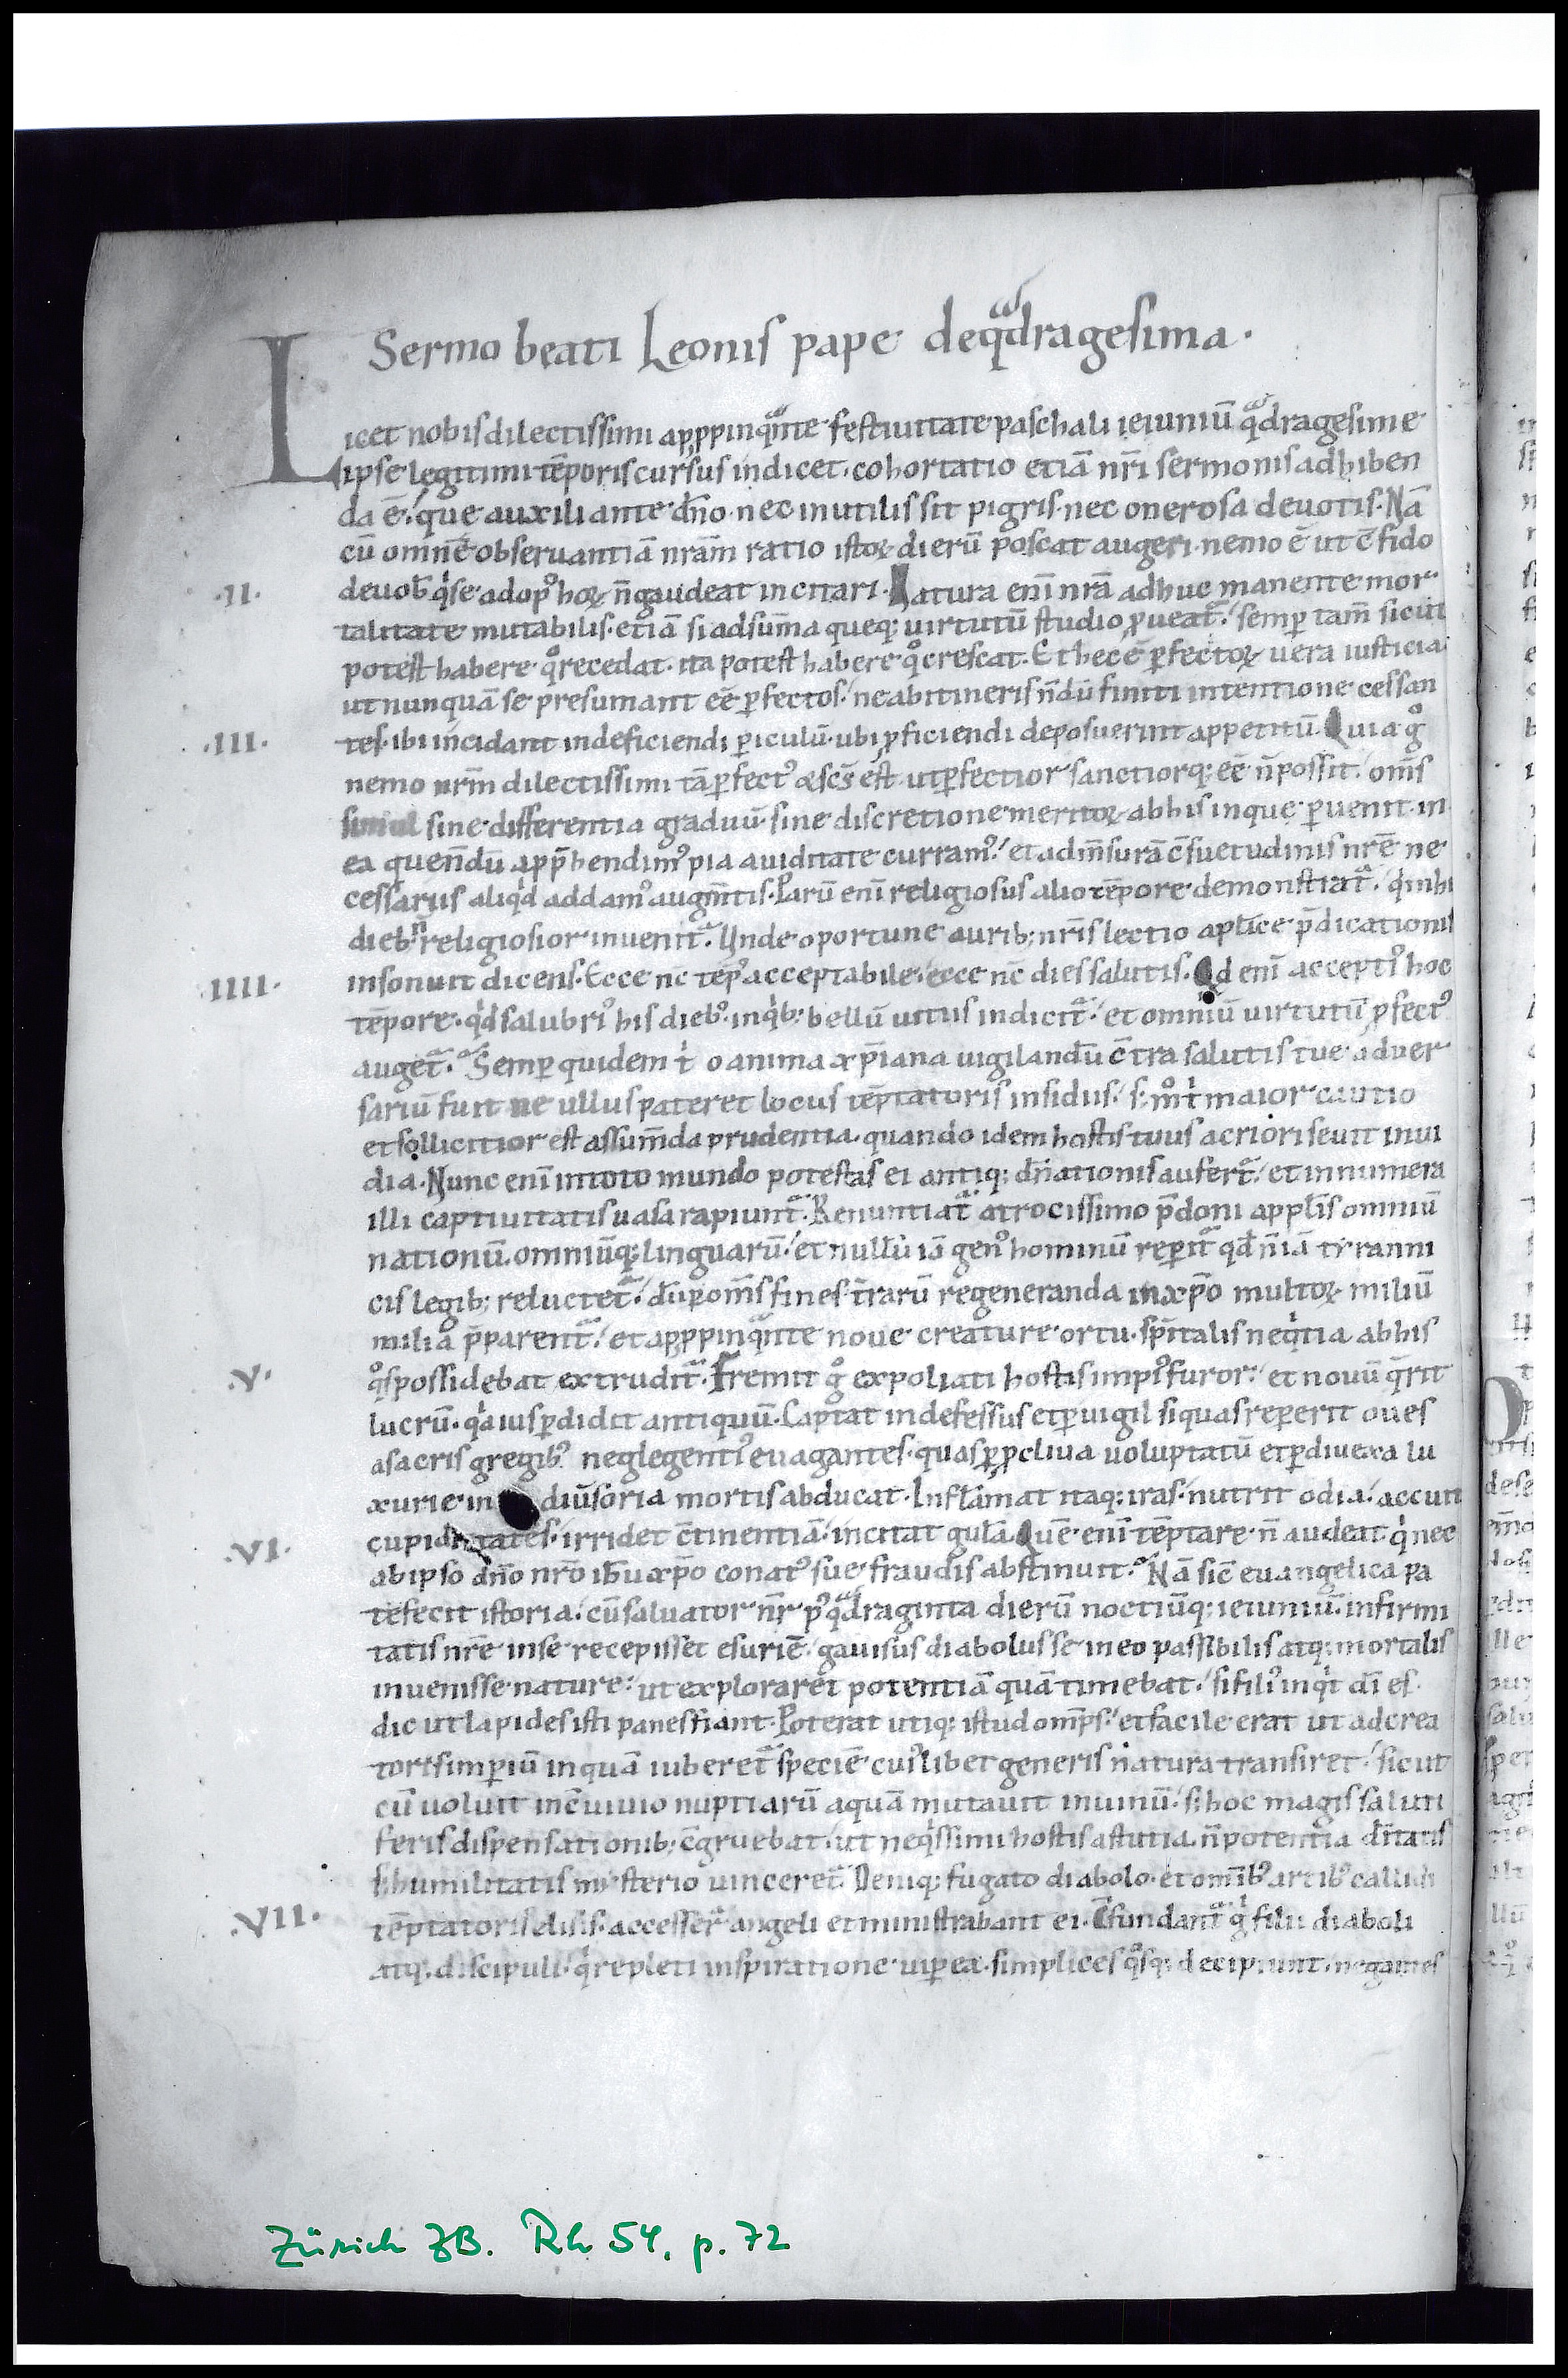 Sermo beati Leonis pape de qͣdragesima.
Licet nobis dilectissimi apꝓpinqͣnte festiuitate paschali ieiuniū qͣdragesime
ipse legitimi tēporis cursus indicet. cohortatio etiā nr̄i sermonis adhiben
da ē. que auxiliante dn̄o. nec inutilis sit pigris. nec onerosa deuotis. Nā
cū omnē obseruantiā nrām ratio istoꝝ dierū poscat augeri. nemo ē ut c̄fido
.II. deuob qͥ se ad opꝰ hoꝝ n̄ gaudeat incitari. Natura eni nrā adhuc manente mor
talitate mutabilis. etiā si ad sūma queqꝫ uirtutū studio ꝓueatᷓ. semꝑ tam̄ sicut
potest habere qͦ recedat. ita potest habere qͦ crescat. Et hec ē ꝑfectoꝝ uera iusticia
ut nunquā se presumant eē ꝑfectos. ne ab itineris n̄dū finiti intentione cessan
.III. tes. ibi incidant in deficiendi ꝑiculū. ubi ꝓficiendi deposuerint appetitū. Quia gͦ
nemo nrm̄ dilectissimi tā ꝑfectꝰ & sc̄s est ut ꝑfectior sanctiorqꝫ eē n̄ possit. om̄s
simul sine differentia graduū. sine discretione meritoꝝ. ab his in que ꝑuenit. in
ea quen̄dū app̄hendimꝰ pia auiditate curramꝰ. et ad m̄surā c̄suetudinis nr̄e ne
cessariis aliqͥd addamꝰ augm̄tis. Parū eni religiosus alio tēpore demonstratᷓ. qͥ in hi
diebꝰ n̄ religiosior inuenitᷓ. Unde oportune auribꝫ nr̄is lectio aplīce p̄dicationis
.IIII. insonuit dicens. Ecce nc̄ tēpꝰ acceptabile. ecce nc̄ dies salutis. Qd eni acceptiꝰ hoc
tēpore. qͥd salubriꝰ his diebꝰ. in qͥbꝫ bellū uitiis indicitᷓ. et omniū uirtutū ꝓfectꝰ
augetᷓ. Semꝑ quidem tͥ o anima xp̄iana uigilandū c̄tra salutis tue aduer
sariū fuit ne ullus pateret locus tēptatoris insidiis. sꝫ mͦ tͥ maior cautio
et sollicitior est assum̄da prudentia. quando idem hostis tuus acriori seuit inui
dia. Nunc eni in toto mundo potestas ei antiqꝫ dn̄ationis aufertᷓ. et innumera
illi captiuitatis uasa rapiuntᷓ. Renuntiatᷓ atrocissimo p̄doni a ppl̄is omniū
nationū. omniūqꝫ linguarū. et nullū iā genꝰ hominū reꝑitᷓ qd̄ n̄ iā tyranni
cis legibꝫ reluctetᷓ. dū ꝑ om̄s fines t̄rarū regeneranda in xp̄o multoꝝ miliū
milia p̄parentᷓ. et apꝓpinqͣnte noue creature ortu. sp̄italis neqͥtia ab his
.V. qͦs possidebat extruditᷓ. Fremit gͦ expoliati hostis impiꝰ furor. et nouū q̄rit
lucrū. qͥa ius ꝑdidit antiquū. Captat indefessus et ꝑuigil si quas reꝑerit oues
a sacris gregibꝰ neglegentiꝰ euagantes. quas ꝑ ꝓcliua uoluptatū et ꝑ diuexa lu
xurie in diūsoria mortis abducat. Inflāmat itaqꝫ iras. nutrit odia. accuit
.VI. cupiditates. irridet c̄tinentiā. incitat gulā. Quē eni tēptare n̄ audeat qͥ nec
ab ipso dn̄o nr̄o ihu xp̄o conatꝰ sue fraudis abstinuit. Nā sic̄ euangelica pa
tefecit istoria. cū saluator nr̄ pꝰ qͣdraginta dierū noctiūqꝫ ieiuniū. infirmi
tatis nr̄e in se recepisset esuriē. gauisus diabolus se in eo passibilis atqꝫ mortalis
inuenisse nature. ut exploraret potentiā quā timebat. si filiꝰ inqͥt dī es.
dic ut lapides isti panes fiant. Poterat utiqꝫ istud omp̄s. et facile erat ut ad crea
toris imꝑiū in quā iuberetᷓ speciē cuiꝰlibet generis natura transiret. sicut
cū uoluit in c̄uiuio nuptiarū aquā mutauit in uinū. sꝫ hoc magis saluti
feris dispensationibꝫ c̄gruebat. ut neqͥssimi hostis astutia. n̄ potentia d̄itatis
sꝫ humilitatis mysterio uinceretᷓ. Deniqꝫ fugato diabolo. et omībꝰ artibꝰ callidi
.VII. tēptatoris elisis. accesserᷓ angeli et ministrabant ei. C̄fundantᷓ gͥ filii diaboli
atqꝫ discipuli. qͥ repleti inspiratione uiꝑea. simplices qͦsqꝫ decipiunt. negantes
Zürich ZB. Rh 54, p. 72